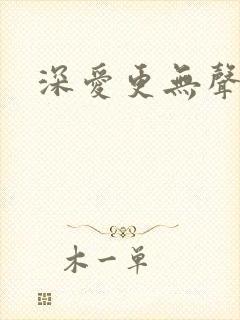 深愛更無聲
木一單